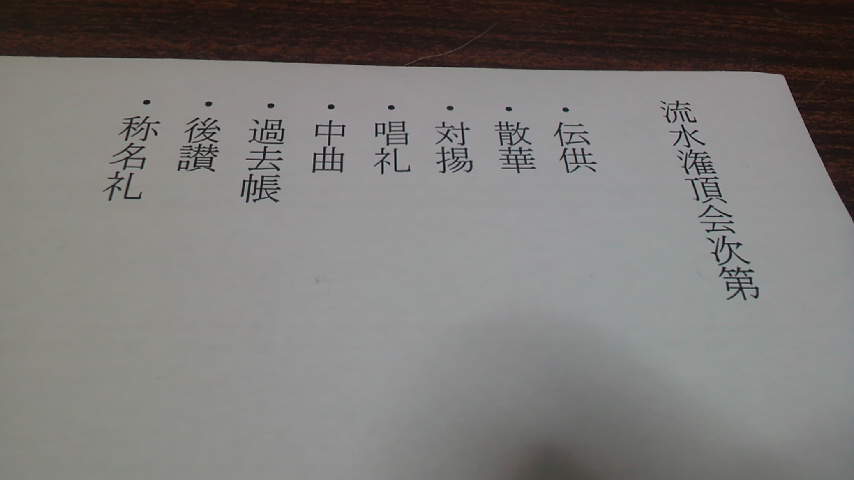 流水灌頂会次第
・伝供
・散華
・対揚
・唱礼
・中曲
・過去帳
・後讃
・称名礼